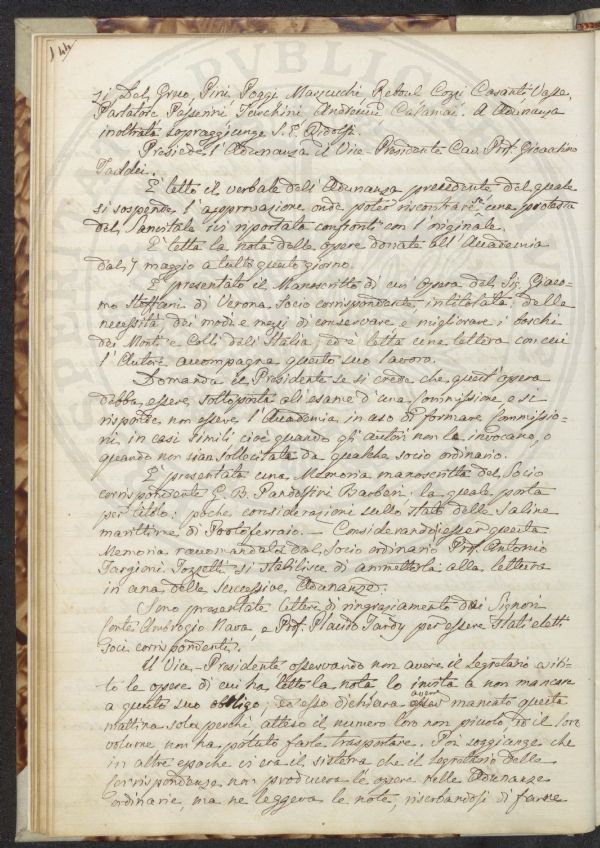 144
si Del Greco, Pini, Poggi, Marcucchi, Reboul, Cozzi, Casanti,
Parlatore, Passerini, Turchini, Andreini, Calamai. A Adunanza
inoltrata sopraggiunge S. E. Ridolfi.
Presiede l'Adunanza il Vice-Presidente Cav. Prof. Gioacchino
Taddei.
È letto il verbale dell'Adunanza precedente del quale
si sospende l'approvazione onde poter riscontrare se una protesta
del Sanvitale ivi riportata confronti con l'originale.
È letta la nota delle opere donate all'Accademia
dal 7 maggio a tutto questo giorno.
È presentato il Manoscritto di un'opera del Sig. Giaco-
mo Stoffani di Verona Socio corrispondente, intitolata delle
necessità, dei modi e mezzi di conservare e migliorare i boschi
dei Monti e Colli dell'Italia, ed è letta una lettera con cui
l'Autore accompagna questo suo lavoro.
Domanda il Presidente se si creda che quest'opera
debba essere sottoposta all'esame d'una Commissione, e si
risponde non essere l'Accademia in uso di formare Commissio-
ni in casi simili cioè quando gli autori non le invocano, o
quando non sian sollecitate da qualche socio ordinario.
È presentata una Memoria manoscritta del Socio
corrispondente G. B. Pandolfini Barberi, la quale porta
per titolo: poche considerazioni sullo stato delle Saline
marittime di Portoferraio. — Considerando esser questa
Memoria raccomandata dal Socio ordinario Prof. Antonio
Targioni Tozzetti si stabilisce di ammetterla alla lettura
in una delle successive Adunanze.
Sono presentate lettere di ringraziamento dei Signori
Conte Ambrogio Nava, e Prof. Placido Tardy per essere stati eletti
Soci corrispondenti.
Il Vice-Presidente osservando non avere il Segretario esibi-
to le opere di cui ha letto la nota lo invita a non mancare
a questo suo obbligo; ed esso dichiara avere mancato questa
mattina solo perché atteso il numero loro non piccolo ed il loro
volume non ha potuto farle trasportare. Poi soggiunge che
in altre epoche vi era il sistema che il Segretario delle
Corrispondenze non produceva le opere nelle Adunanze
ordinarie, ma ne leggeva le note, riserbandosi di farne